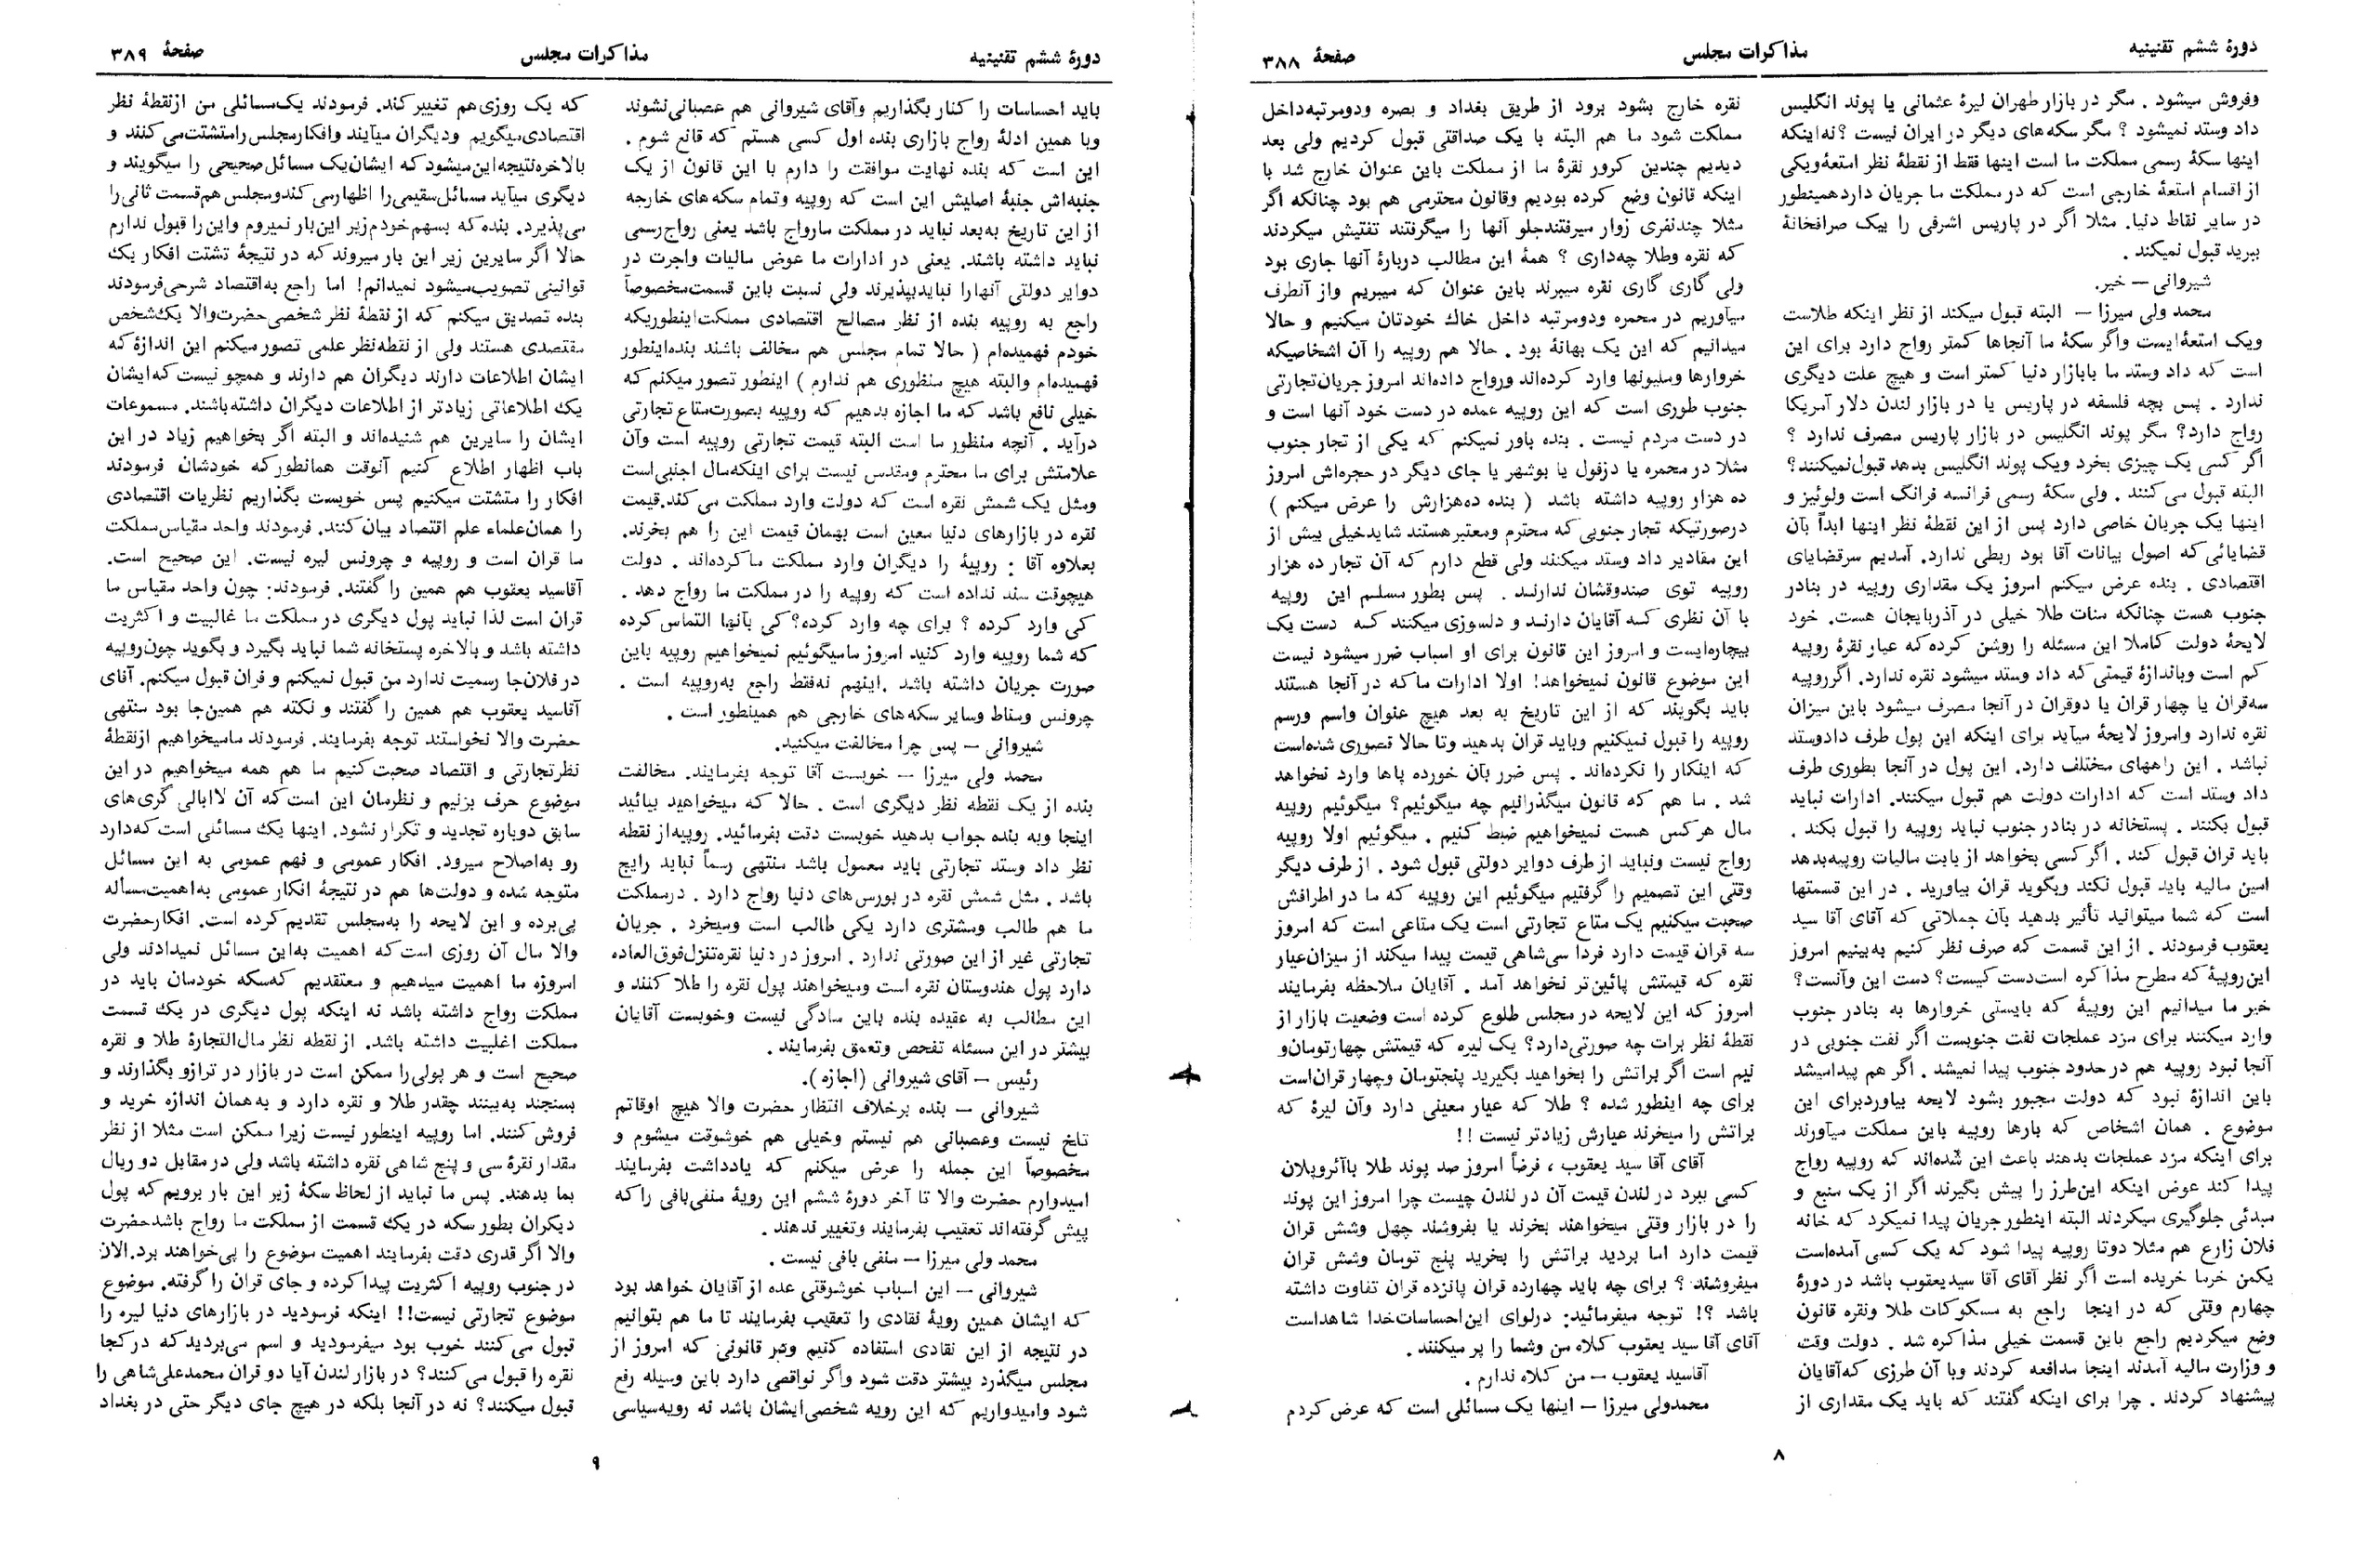 دورهٔ ششم تقنینیه
مذاکرات مجلس
صفحهٔ ۳۸۸
وفروش میشود . مگر در بازار طهران لیرهٔ عثمانی یا پوند انگلیس
داد وستد نمیشود ؟ مگر سکه‌های دیگر در ایران نیست ؟ نه‌اینکه
اینها سکهٔ رسمی مملکت ما است اینها فقط از نقطهٔ نظر امتعهٔ‌ویکی
از اقسام امتعهٔ خارجی است که در مملکت ما جریان دارد همینطور
در سایر نقاط دنیا. مثلا اگر در پاریس اشرفی را بیک صرافخانهٔ
ببرید قبول نمیکند .
شیروانی – خیر.
محمد ولی میرزا – البته قبول میکند از نظر اینکه طلاست
ویک امتعهٔ‌ایست واگر سکهٔ ما آنجاها کمتر رواج دارد برای این
است که داد وستد ما بابازار دنیا کمتر است و هیچ علت دیگری
ندارد . پس بچه فلسفه در پاریس یا در بازار لندن دلار آمریکا
رواج دارد؟ مگر پوند انگلیس در بازار پاریس مصرف ندارد ؟
اگر کسی یک چیزی بخرد ویک پوند انگلیس بدهد قبول‌نمیکنند؟
البته قبول می‌کنند . ولی سکهٔ رسمی فرانسه فرانگ است ولوئیز و
اینها یک جریان خاصی دارد پس از این نقطهٔ نظر اینها ابداً بآن
قضایائی‌که اصول بیانات آقا بود ربطی ندارد. آمدیم سرقضایای
اقتصادی . بنده عرض میکنم امروز یک مقداری روپیه در بنادر
جنوب هست چنانکه منات طلا خیلی در آذربایجان هست. خود
لایحهٔ دولت کاملا این مسئله را روشن کرده‌که عیار نقرهٔ روپیه
کم است وباندازهٔ قیمتی‌که داد وستد میشود نقره ندارد. اگرروپیه
سه‌قران یا چهار قران یا دوقران در آنجا مصرف میشود باین میزان
نقره ندارد وامروز لایحهٔ میآید برای اینکه این پول طرف دادوستد
نباشد . این راههای مختلف دارد. این پول در آنجا بطوری طرف
داد وستد است که ادارات دولت هم قبول میکنند. ادارات نباید
قبول بکنند . پستخانه در بنادر جنوب نباید روپیه را قبول بکند .
باید قران قبول کند . اگر کسی بخواهد از بابت مالیات روپیه‌بدهد
امین مالیه باید قبول نکند وبگوید قران بیاورید . در این قسمتها
است که شما میتوانید تأثیر بدهید بآن جملاتی که آقای آقا سید
یعقوب فرمودند . از این قسمت که صرف نظر کنیم به‌بینیم امروز
این‌روپیهٔ‌که مطرح مذاکره است‌دست کیست؟ دست این وآنست؟
خیر ما میدانیم این روپیهٔ که بایستی خروارها به بنادر جنوب
وارد میکنند برای مزد عملجات نفت جنوبست اگر نفت جنوبی در
آنجا نبود روپیه هم در حدود جنوب پیدا نمیشد . اگر هم پیدامیشد
باین اندازهٔ نبود که دولت مجبور بشود لایحه بیاوردبرای این
موضوع . همان اشخاص که بارها روپیه باین مملکت میآورند
برای اینکه مزد عملجات بدهند باعث این شده‌اند که روپیه رواج
پیدا کند عوض اینکه این‌طرز را پیش بگیرند اگر از یک منبع و
مبدئی جلوگیری میکردند البته اینطور جریان پیدا نمیکرد که خانه
فلان زارع هم مثلا دوتا روپیه پیدا شود که یک کسی آمده‌است
یکمن خرما خریده است اگر نظر آقای آقا سیدیعقوب باشد در دورهٔ
چهارم وقتی که در اینجا راجع به مسکوکات طلا ونقره قانون
وضع میکردیم راجع باین قسمت خیلی مذاکره شد . دولت وقت
و وزارت مالیه آمدند اینجا مدافعه کردند وبا آن طرزی که‌آقایان
پیشنهاد کردند . چرا برای اینکه گفتند که باید یک مقداری از
نقره خارج بشود برود از طریق بغداد و بصره ودومرتبه‌داخل
مملکت شود ما هم البته با یک صداقتی قبول کردیم ولی بعد
دیدیم چندین کرور نقرهٔ ما از مملکت باین عنوان خارج شد با
اینکه قانون وضع کرده بودیم وقانون محترمی هم بود چنانکه اگر
مثلا چندنفری زوار میرفتندجلو آنها را میگرفتند تفتیش میکردند
که نقره وطلا چه‌داری ؟ همهٔ این مطالب دربارهٔ آنها جاری بود
ولی گاری گاری نقره میبرند باین عنوان که میبریم واز آنطرف
میآوریم در محمره ودومرتبه داخل خاك خودتان میکنیم و حالا
میدانیم که این یک بهانهٔ بود . حالا هم روپیه را آن اشخاصیکه
خروارها ومیلیونها وارد کرده‌اند ورواج داده‌اند امروز جریان‌تجارتی
جنوب طوری است که این روپیه عمده در دست خود آنها است و
در دست مردم نیست . بنده باور نمیکنم که یکی از تجار جنوب
مثلا در محمره یا دزفول یا بوشهر یا جای دیگر در حجره‌اش امروز
ده هزار روپیه داشته باشد ( بنده ده‌هزارش را عرض میکنم )
درصورتیکه تجار جنوبی که محترم ومعتبر هستند شاید خیلی بیش از
این مقادیر داد وستد میکنند ولی قطع دارم که آن تجار ده هزار
روپیه توی صندوقشان ندارند . پس بطور مسلم این روپیه
با آن نظری کـه آقایان دارنـد و دلسوزی میکنند کـه دست یک
بیچاره‌ایست و امروز این قانون برای او اسباب ضرر میشود نیست
این موضوع قانون نمیخواهد! اولا ادارات ماکه در آنجا هستند
باید بگویند که از این تاریخ به بعد هیچ عنوان واسم ورسم
روپیه را قبول نمیکنیم وباید قران بدهید وتا حالا قصوری شده‌است
که اینکار را نکرده‌اند . پس ضرر بآن خورده پاها وارد نخواهد
شد . ما هم که قانون میگذرانیم چه میگوئیم؟ میگوئیم روپیه
مال هرکس هست نمیخواهیم ضبط کنیم . میگوئیم اولا روپیه
رواج نیست ونباید از طرف دوایر دولتی قبول شود . از طرف دیگر
وقتی این تصمیم را گرفتیم میگوئیم این روپیه که ما در اطرافش
صحبت میکنیم یک متاع تجارتی است یک متاعی است که امروز
سه قران قیمت دارد فردا سی‌شاهی قیمت پیدا میکند از میزان‌عیار
نقره که قیمتش پائین‌تر نخواهد آمد . آقایان ملاحظه بفرمایند
امروز که این لایحه در مجلس طلوع کرده است وضعیت بازار از
نقطهٔ نظر برات چه صورتی‌دارد؟ یک لیره که قیمتش چهارتومان‌و
نیم است اگر براتش را بخواهید بگیرید پنجتومان وچهار قران‌است
برای چه اینطور شده ؟ طلا که عیار معینی دارد وآن لیرهٔ که
براتش را میخرند عیارش زیادتر نیست !!
آقای آقا سید یعقوب ، فرضاً امروز صد پوند طلا باآئروپلان
کسی ببرد در لندن قیمت آن در لندن چیست چرا امروز این پوند
را در بازار وقتی میخواهند بخرند یا بفروشند چهل وشش قران
قیمت دارد اما بردید براتش را بخرید پنج تومان وشش قران
میفروشند ؟ برای چه باید چهارده قران پانزده قران تفاوت داشته
باشد ؟! توجه میفرمائید: درلوای این‌احساسات‌خدا شاهداست
آقای آقا سید یعقوب کلاه من وشما را پر میکنند .
آقاسید یعقوب – من کلاه ندارم .
محمدولی میرزا – اینها یک مسائلی است که عرض‌کردم
۸
دورهٔ ششم تقنینیه
مذاکرات مجلس
صفحهٔ ۳۸۹
باید احساسات را کنار بگذاریم وآقای شیروانی هم عصبانی‌نشوند
وبا همین ادلهٔ رواج بازاری بنده اول کسی هستم که قانع شوم .
این است که بنده نهایت موافقت را دارم با این قانون از یک
جنبه‌اش جنبهٔ اصلیش این است که روپیه وتمام سکه‌های خارجه
از این تاریخ به‌بعد نباید در مملکت مارواج باشد یعنی رواج‌رسمی
نباید داشته باشند. یعنی در ادارات ما عوض مالیات واجرت در
دوایر دولتی آنهارا نبایدبپذیرند ولی نسبت باین قسمت‌مخصوصاً
راجع به روپیه بنده از نظر مصالح اقتصادی مملکت‌اینطوریکه
خودم فهمیده‌ام ( حالا تمام مجلس هم مخالف باشند بنده‌اینطور
فهمیده‌ام والبته هیچ منظوری هم ندارم ) اینطور تصور میکنم که
خیلی نافع باشد که ما اجازه بدهیم که روپیه بصورت‌متاع تجارتی
درآید . آنچه منظور ما است البته قیمت تجارتی روپیه است وآن
علامتش برای ما محترم ومقدس نیست برای اینکه‌مال اجنبی‌است
ومثل یک شمش نقره است که دولت وارد مملکت می‌کند.قیمت
نقره در بازارهای دنیا معین است بهمان قیمت این را هم بخرند.
بعلاوه آقا : روپیهٔ را دیگران وارد مملکت ماکرده‌اند . دولت
هیچوقت سند نداده است که روپیه را در مملکت ما رواج دهد .
کی وارد کرده ؟ برای چه وارد کرده؟ کی بآنها التماس کرده
که شما روپیه وارد کنید امروز مامیگوئیم نمیخواهیم روپیه باین
صورت جریان داشته باشد .اینهم نه‌فقط راجع به‌روپیه است .
چرونس ومناط وسایر سکه‌های خارجی هم همینطور است .
شیروانی – پس چرا مخالفت میکنید.
محمد ولی میرزا – خوبست آقا توجه بفرمایند. مخالفت
بنده از یک نقطه نظر دیگری است . حالا که میخواهید بیائید
اینجا وبه بنده جواب بدهید خوبست دقت بفرمائید. روپیه‌از نقطه
نظر داد وستد تجارتی باید معمول باشد منتهی رسماً نباید رایج
باشد . مثل شمش نقره در بورس‌های دنیا رواج دارد . درمملکت
ما هم طالب ومشتری دارد یکی طالب است ومیخرد . جریان
تجارتی غیر از این صورتی ندارد . امروز در دنیا نقره‌تنزل‌فوق‌العاده
دارد پول هندوستان نقره است ومیخواهند پول نقره را طلا کنند و
این مطالب به عقیده بنده باین سادگی نیست وخوبست آقایان
بیشتر در این مسئله تفحص وتعمق بفرمایند .
رئیس – آقای شیروانی (اجازه ).
شیروانی – بنده برخلاف انتظار حضرت والا هیچ اوقاتم
تلخ نیست وعصبانی هم نیستم وخیلی هم خوشوقت میشوم و
مخصوصاً این جمله را عرض میکنم که یادداشت بفرمایند
امیدوارم حضرت والا تا آخر دورهٔ ششم این رویهٔ منفی‌بافی راکه
پیش گرفته‌اند تعقیب بفرمایند وتغییر ندهند .
محمد ولی میرزا – منفی بافی نیست .
شیروانی – این اسباب خوشوقتی عده از آقایان خواهد بود
که ایشان همین رویهٔ نقادی را تعقیب بفرمایند تا ما هم بتوانیم
در نتیجه از این نقادی استفاده کنیم وبر قانونی که امروز از
مجلس میگذرد بیشتر دقت شود واگر نواقصی دارد باین وسیله رفع
شود وامیدواریم که این رویه شخصی‌ایشان باشد نه رویه‌سیاسی
که یک روزی‌هم تغییرکند. فرمودند یک‌مسائلی من ازنقطهٔ نظر
اقتصادی‌میگویم ودیگران میآیند وافکارمجلس‌رامتشتت‌می‌کنند و
بالاخره‌نتیجه‌این‌میشودکه ایشان‌یک مسائل صحیحی را میگویند و
دیگری میآید مسائل‌سقیمی‌را اظهارمی‌کندومجلس هم‌قسمت ثانی‌را
می‌پذیرد. بنده‌که بسهم‌خودم‌زیر این‌بار نمیروم واین‌را قبول ندارم
حالا اگر سایرین زیر این بار میروندکه در نتیجهٔ تشتت افکار یك
قوانینی تصویب‌میشود نمیدانم! اما راجع به‌اقتصاد شرحی‌فرمودند
بنده تصدیق میکنم که از نقطهٔ نظر شخصی‌حضرت‌والا یک‌شخص
مقتصدی هستند ولی از نقطه‌نظر علمی تصور میکنم این اندازهٔ‌که
ایشان اطلاعات دارند دیگران هم دارند و همچو نیست که‌ایشان
یك اطلاعاتی زیادتر از اطلاعات دیگران داشته‌باشند. مسموعات
ایشان را سایرین هم شنیده‌اند و البته اگر بخواهیم زیاد در این
باب اظهار اطلاع کنیم آنوقت همانطورکه خودشان فرمودند
افکار را متشتت میکنیم پس خوبست بگذاریم نظریات اقتصادی
را همان‌علماء علم اقتصاد بیان‌کنند. فرمودند واحد مقیاس‌مملکت
ما قران است و روپیه و چرونس لیره نیست. این صحیح است.
آقاسید یعقوب هم همین را گفتند. فرمودند: چون واحد مقیاس ما
قران است لذا نباید پول دیگری در مملکت ما غالبیت و اکثریت
داشته باشد و بالاخره پستخانه شما نباید بگیرد و بگوید چون‌روپیه
در فلان‌جا رسمیت ندارد من قبول نمیکنم و قران قبول میکنم. آقای
آقاسید یعقوب هم همین را گفتند و نکته هم همین‌جا بود منتهی
حضرت والا نخواستند توجه بفرمایند. فرمودند مامیخواهیم ازنقطهٔ
نظرتجارتی و اقتصاد صحبت‌کنیم ما هم همه میخواهیم در این
موضوع حرف بزنیم و نظرمان این است‌که آن لاابالی گری‌های
سابق دوباره تجدید و تکرار نشود. اینها یك مسائلی است که‌دارد
رو به‌اصلاح میرود. افکار عمومی و فهم عمومی به این مسائل
متوجه شده و دولت‌ها هم در نتیجهٔ افکار عمومی به‌اهمیت‌مسأله
پی‌برده و این لایحه را به‌مجلس تقدیم‌کرده است. افکارحضرت
والا مال آن روزی است‌که اهمیت به‌این مسائل نمیدادند ولی
امروزه ما اهمیت میدهیم و معتقدیم که‌سکه خودمان باید در
مملکت رواج داشته باشد نه اینکه پول دیگری در یك قسمت
مملکت اغلبیت داشته باشد. از نقطه نظر مال‌التجارهٔ طلا و نقره
صحیح است و هر پولی‌را ممکن است در بازار در ترازو بگذارند و
بسنجند به‌بینند چقدر طلا و نقره دارد و به‌همان اندازه خرید و
فروش‌کنند. اما روپیه اینطور نیست زیرا ممکن است مثلا از نظر
مقدار نقرهٔ سی و پنج شاهی نقره داشته باشد ولی در مقابل دو ریال
بما بدهند. پس ما نباید از لحاظ سکهٔ زیر این بار برویم‌که پول
دیکران بطور سکه در یك قسمت از مملکت ما رواج باشدحضرت
والا اگر قدری دقت بفرمایند اهمیت موضوع را پی‌خواهند برد.الان
در جنوب روپیه اکثریت پیداکرده و جای قران را گرفته. موضوع
موضوع تجارتی نیست!! اینکه فرمودید در بازارهای دنیا لیره را
قبول می‌کنند خوب بود میفرمودید و اسم می‌بردیدکه در کجا
نقره را قبول می‌کنند؟ در بازار لندن آیا دو قران محمدعلی‌شاهی را
قبول میکنند؟ نه در آنجا بلکه در هیچ جای دیگر حتی در بغداد
۹